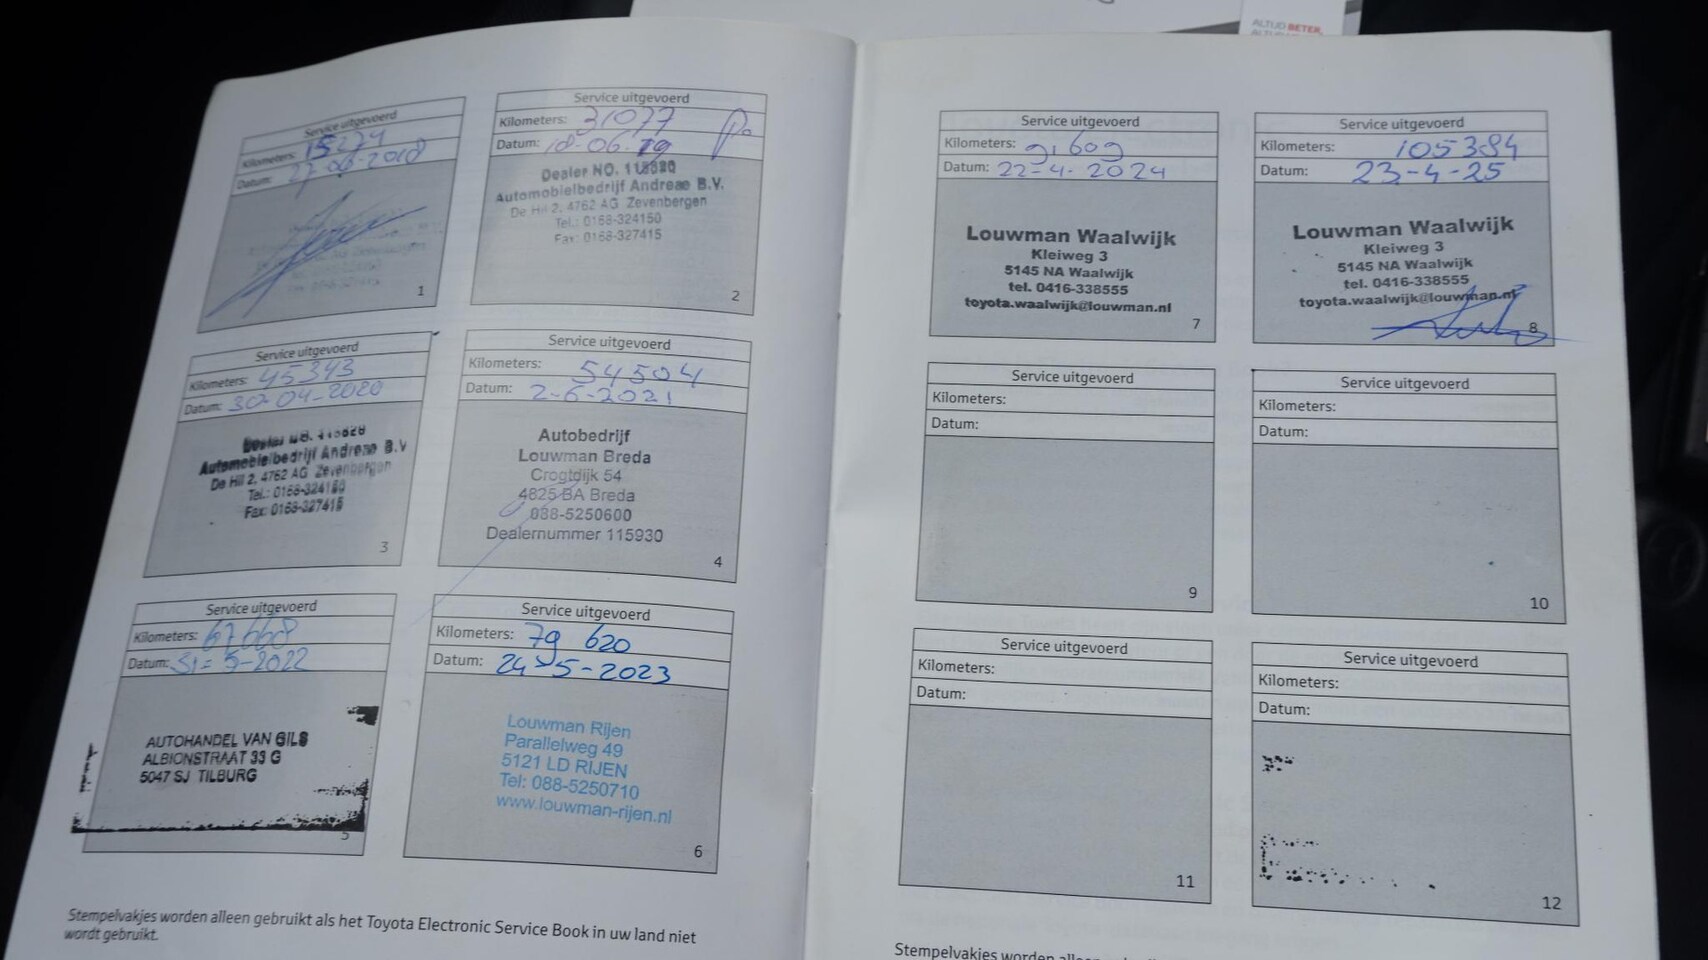 ALTIJD BETER
Service uitgevoerd
Kilometers: 15274
Datum: 27-06-2018
1
Service uitgevoerd
Kilometers: 31077
Datum: 18-06-19
Dealer NO. 115820
Automobielbedrijf Andreae B.V.
De Hil 2, 4762 AG Zevenbergen
Tel.: 0168-324150
Fax: 0168-327415
2
Service uitgevoerd
Kilometers: 45343
Datum: 30-04-2020
Dealer NO. 115820
Automobielbedrijf Andreae B.V
De Hil 2, 4762 AG Zevenbergen
Tel.: 0168-324150
Fax: 0168-327415
3
Service uitgevoerd
Kilometers: 54504
Datum: 2-6-2021
Autobedrijf
Louwman Breda
Crogtdijk 54
4825 BA Breda
088-5250600
Dealernummer 115930
4
Service uitgevoerd
Kilometers: 67668
Datum: 31-5-2022
AUTOHANDEL VAN GILS
ALBIONSTRAAT 33 G
5047 SJ TILBURG
5
Service uitgevoerd
Kilometers: 79 620
Datum: 24-5-2023
Louwman Rijen
Parallelweg 49
5121 LD RIJEN
Tel: 088-5250710
www.louwman-rijen.nl
6
Stempelvakjes worden alleen gebruikt als het Toyota Electronic Service Book in uw land niet
wordt gebruikt.
Service uitgevoerd
Kilometers: 91.609
Datum: 22-4-2024
Louwman Waalwijk
Kleiweg 3
5145 NA Waalwijk
tel. 0416-338555
toyota.waalwijk@louwman.nl
7
Service uitgevoerd
Kilometers: 105384
Datum: 23-4-25
Louwman Waalwijk
Kleiweg 3
5145 NA Waalwijk
tel. 0416-338555
toyota.waalwijk@louwman.nl
8
Service uitgevoerd
Kilometers:
Datum:
9
Service uitgevoerd
Kilometers:
Datum:
10
Service uitgevoerd
Kilometers:
Datum:
11
Service uitgevoerd
Kilometers:
Datum:
12
Stempelvakjes worden